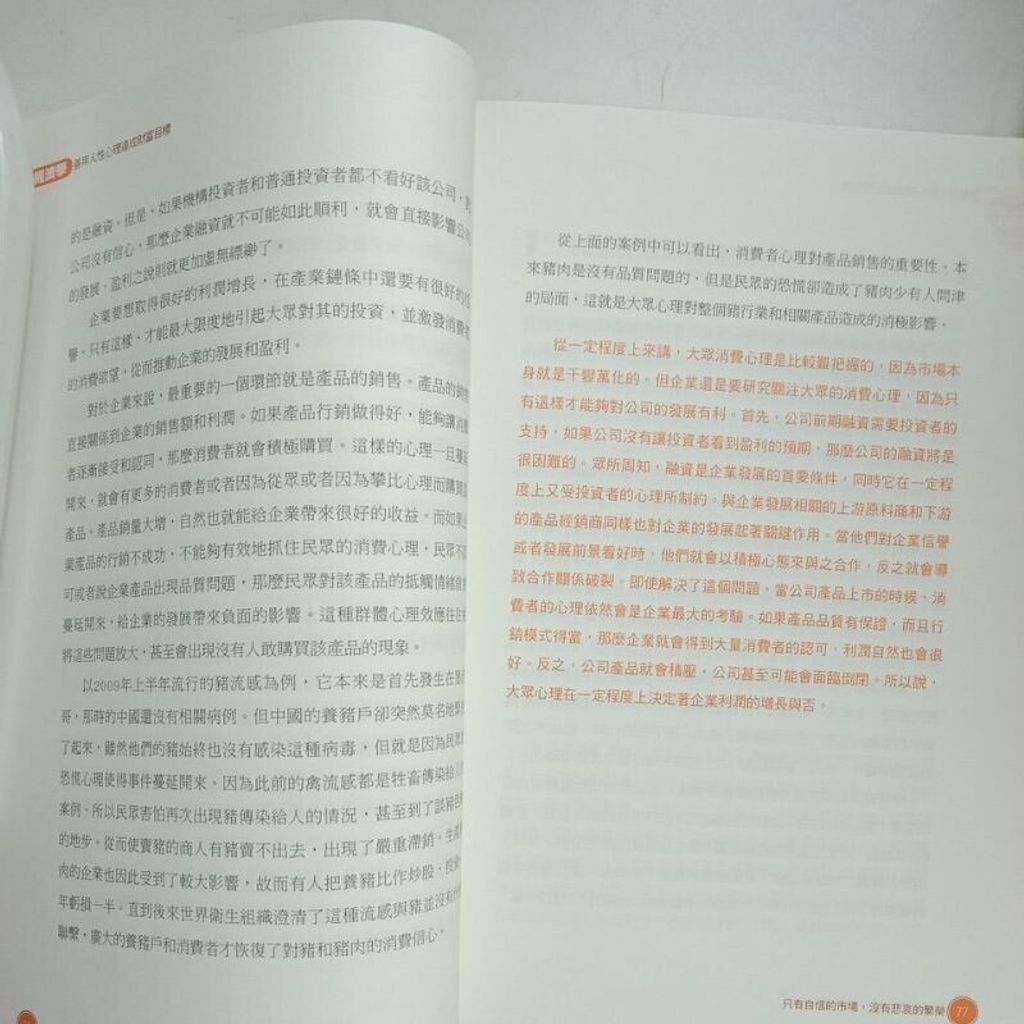 經濟學 善用人性心理達成財富目標
的是融資。但是，如果機構投資者和普通投資者都不看好該公司，對
公司沒有信心，那麼企業融資就不可能如此順利，就會直接影響公司
的發展，盈利之說則就更加虛無縹緲了。
企業要想取得很好的利潤增長，在產業鏈條中還要有很好的信
譽。只有這樣，才能最大限度地引起大眾對其的投資，並激發消費者
的消費欲望，從而推動企業的發展和盈利。
對於企業來說，最重要的一個環節就是產品的銷售。產品的銷售
直接關係到企業的銷售額和利潤。如果產品行銷做得好，能夠讓消費
者逐漸接受和認同，那麼消費者就會積極購買。這樣的心理一旦蔓延
開來，就會有更多的消費者或者因為從眾或者因為攀比心理而購買該
產品。產品銷量大增，自然也就能給企業帶來很好的收益。而如果企
業產品的行銷不成功，不能夠有效地抓住民眾的消費心理，民眾不認
可或者說企業產品出現品質問題，那麼民眾對該產品的抵觸情緒就會
蔓延開來，給企業的發展帶來負面的影響。這種群體心理效應往往會
將這些問題放大，甚至會出現沒有人敢購買該產品的現象。
以2009年上半年流行的豬流感為例，它本來是首先發生在墨西
哥，那時的中國還沒有相關病例。但中國的養豬戶卻突然莫名地緊張
了起來，雖然他們的豬始終也沒有感染這種病毒，但就是因為民眾的
恐慌心理使得事件蔓延開來。因為此前的禽流感都是牲畜傳染給人的
案例，所以民眾害怕再次出現豬傳染給人的情況，甚至到了談豬色變
的地步。從而使賣豬的商人有豬賣不出去，出現了嚴重滯銷。生產豬
肉的企業也因此受到了較大影響，故而有人把養豬比作炒股，投資
年虧損一半。直到後來世界衛生組織澄清了這種流感與豬並沒有
聯繫，廣大的養豬戶和消費者才恢復了對豬和豬肉的消費信心。
從上面的案例中可以看出，消費者心理對產品銷售的重要性。本
來豬肉是沒有品質問題的，但是民眾的恐慌卻造成了豬肉少有人問津
的局面，這就是大眾心理對整個豬行業和相關產品造成的消極影響。
從一定程度上來講，大眾消費心理是比較難把握的，因為市場本
身就是千變萬化的。但企業還是要研究關注大眾的消費心理，因為只
有這樣才能夠對公司的發展有利。首先，公司前期融資需要投資者的
支持，如果公司沒有讓投資者看到盈利的預期，那麼公司的融資將是
很困難的。眾所周知，融資是企業發展的首要條件，同時它在一定程
度上又受投資者的心理所制約。與企業發展相關的上游原料商和下游
的產品經銷商同樣也對企業的發展起著關鍵作用。當他們對企業信譽
或者發展前景看好時，他們就會以積極心態來與之合作，反之就會導
致合作關係破裂。即使解決了這個問題，當公司產品上市的時候，消
費者的心理依然會是企業最大的考驗。如果產品品質有保證，而且行
銷模式得當，那麼企業就會得到大量消費者的認可，利潤自然也會很
好。反之，公司產品就會積壓，公司甚至可能會面臨倒閉。所以說，
大眾心理在一定程度上決定著企業利潤的增長與否。
只有自信的市場，沒有悲哀的繁榮 77